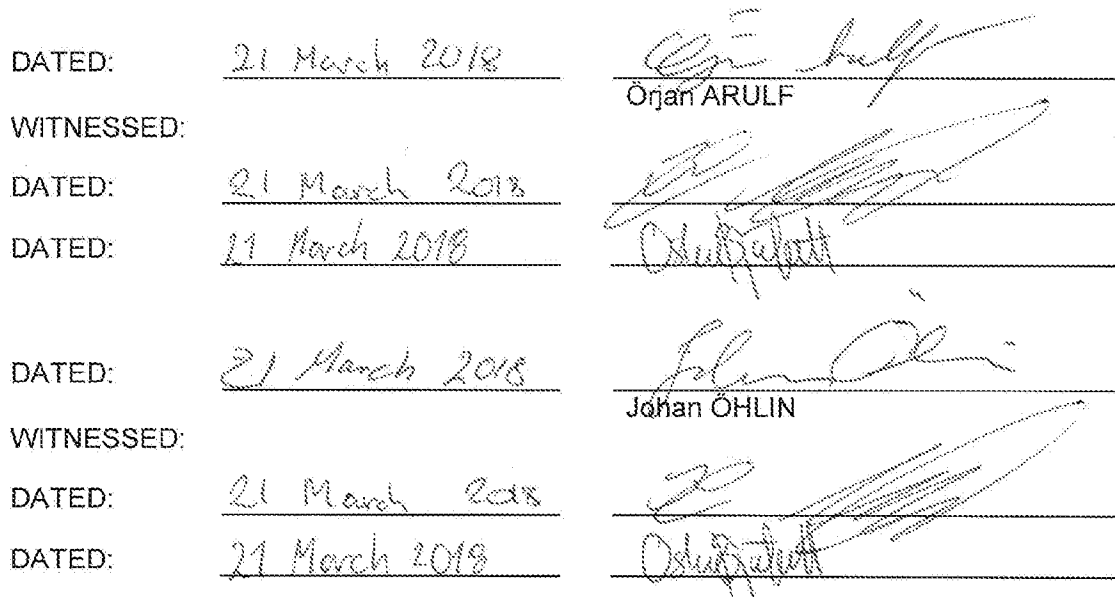 DATED: 21 March 2018
Örjan ARULF
WITNESSED:
DATED: 21 March 2018
DATED: 21 March 2018
DATED: 21 March 2018 Johan Öhlin
Johan ÖHLIN
WITNESSED:
DATED: 21 March 2018
DATED: 21 March 2018